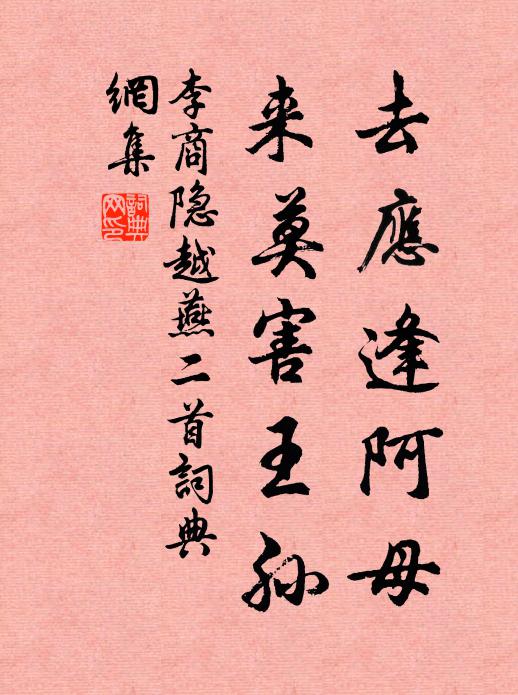 去應逢阿母
来莫害王孙
李商隐越燕二首詞典
網集
詞典
网印